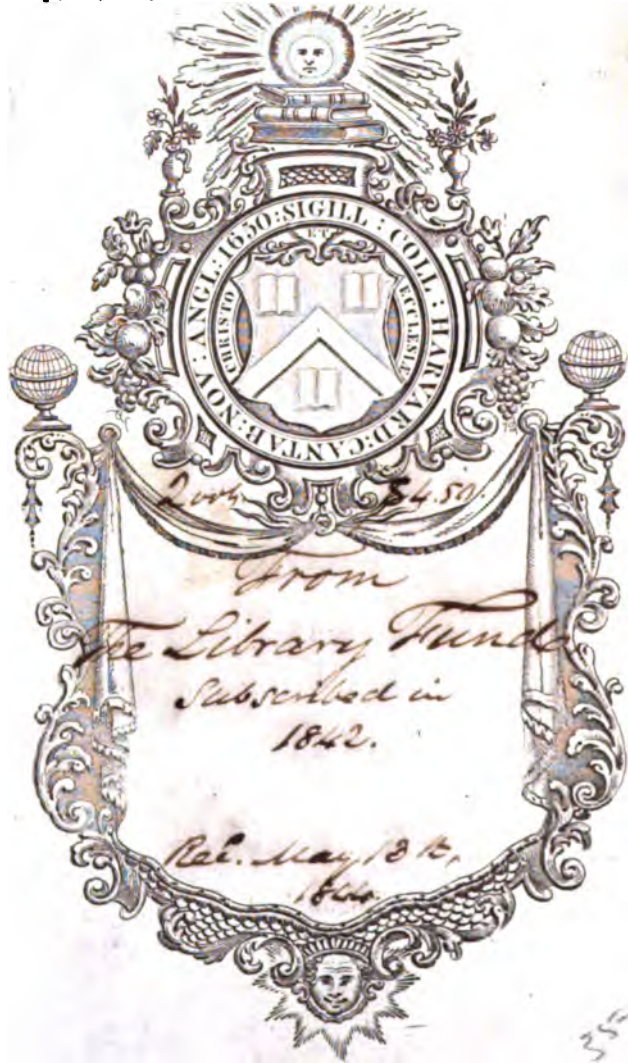 SIGILL : COLL : HARVARD : CANTAB : NOV : ANGL : 1650 :
CHRISTO ET ECCLESIÆ
2 vols. $4.50.
From
The Library Fund
Subscribed in
1842.
Rec. May 13th,
1844.